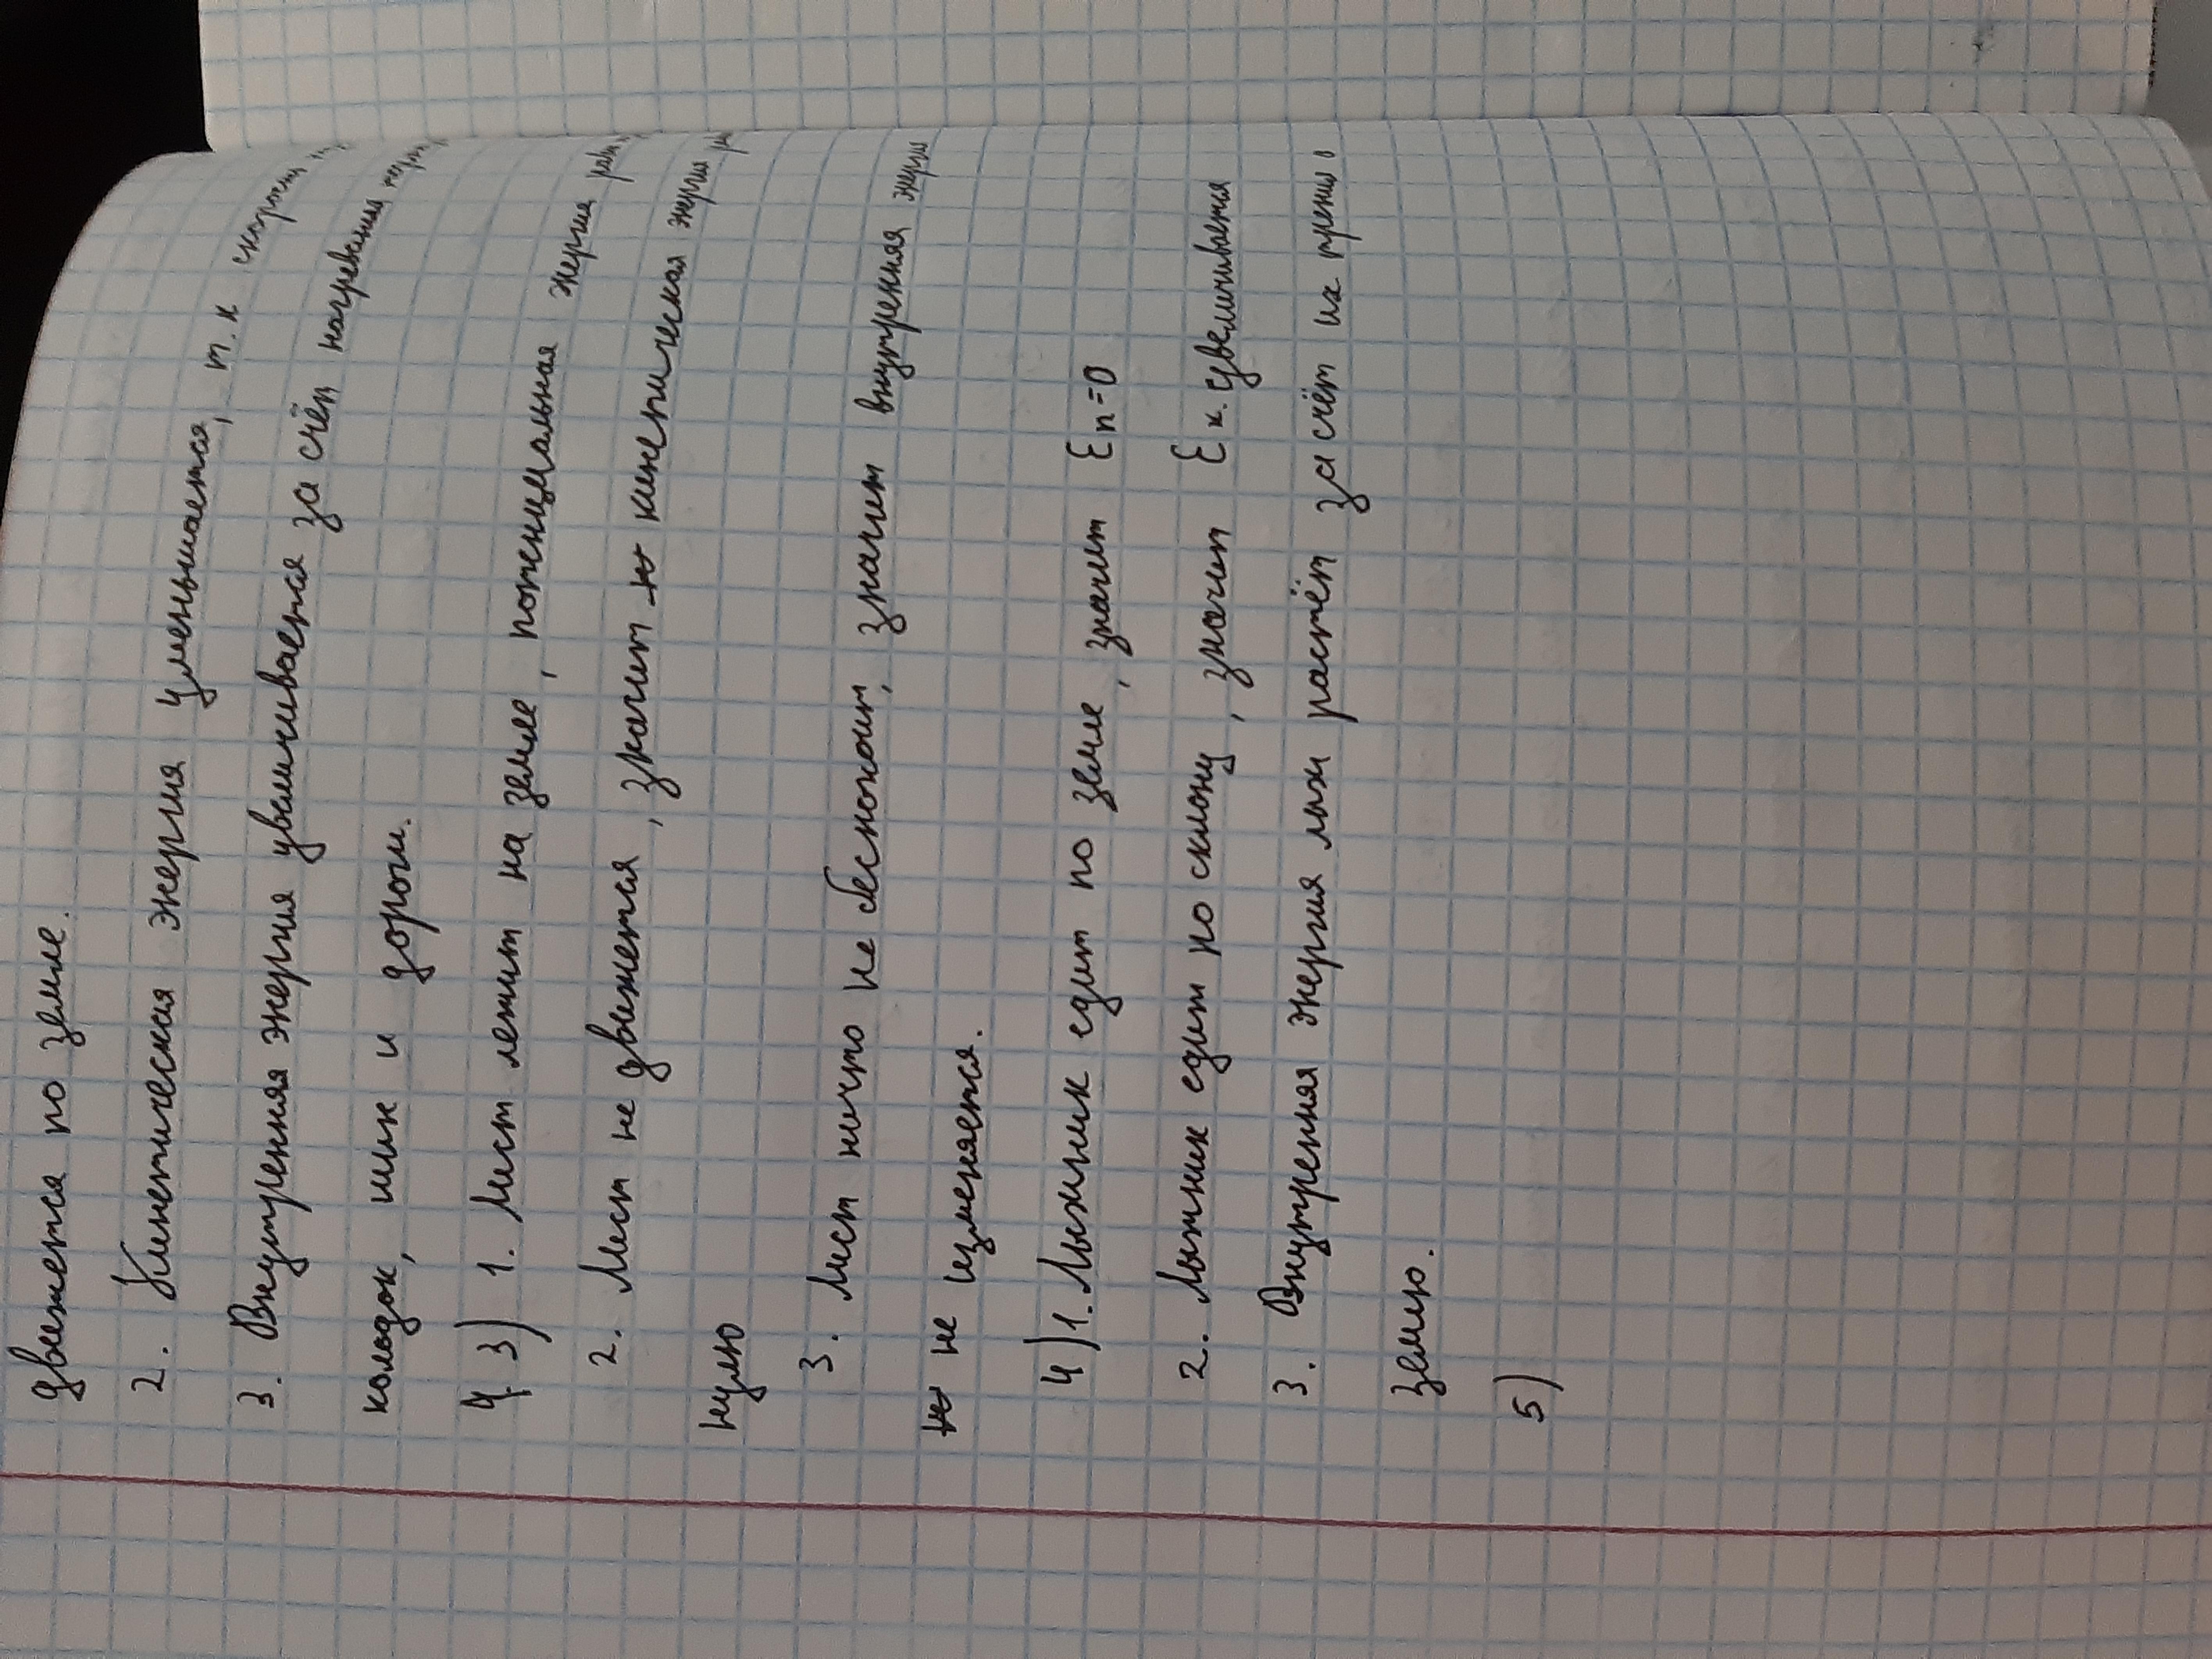 движется по земле.
2. Кинетическая энергия уменьшается, т.к скорость
3. Внутренняя энергия увеличивается за счёт нагревания
колодок, шин и дороги.
3) 1. Лист лежит на земле, потенциальная энергия
2. Лист не движется, значит кинетическая энергия
нулю
3. Лист ничто не беспокоит, значит внутренняя энерги
не изменяется.
4) 1. Лыжник едит по земле, значит Eп=0
2. Лыжник едит по склону, значит Eк. увеличивается
3. Внутренняя энергия лыж растёт за счёт их трения о
землю.
5)